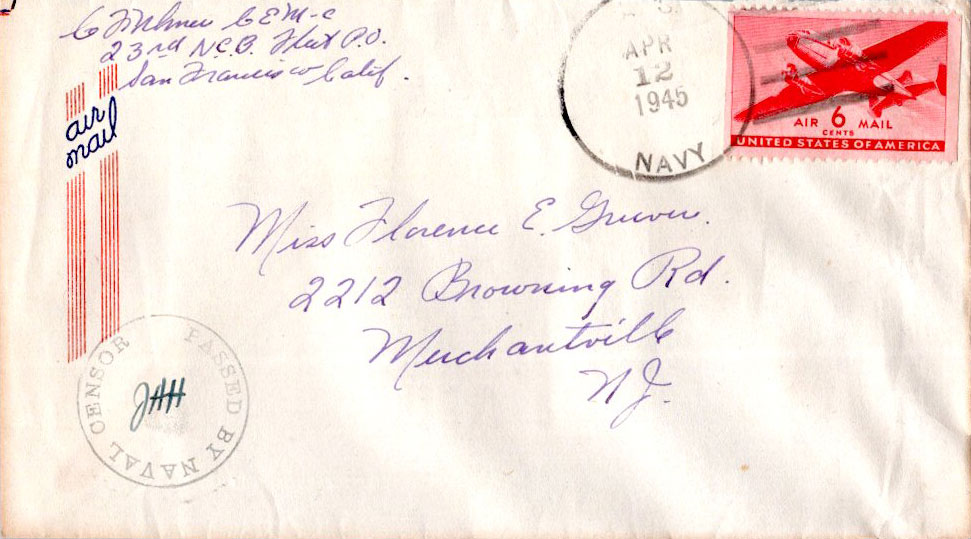 C E M-c
23rd N.C.B. Fleet P.O.
San Francisco Calif.
air
mail
APR
12
1945
NAVY
AIR 6 MAIL
CENTS
UNITED STATES OF AMERICA
Miss Florence E.
2212 Browning Rd.
Merchantville
N.J.
PASSED BY NAVAL CENSOR
JHH